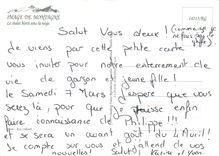 IMAGE DE MONTAGNE
Salut Vous deux! (comme ça je
ne fais pas
Je viens par cette petite carte
vous inviter pour notre enterrement de
vie de garçon et jeune fille!
le Samedi 7 Mars j'espere que vous
serez là, pour que j'ra puisse enfin
faire connaissance de Philippe!!!
et se sera un avant goût du 4 Avril!
Je compte sur vous et attend de vos
nouvelles! Salut,